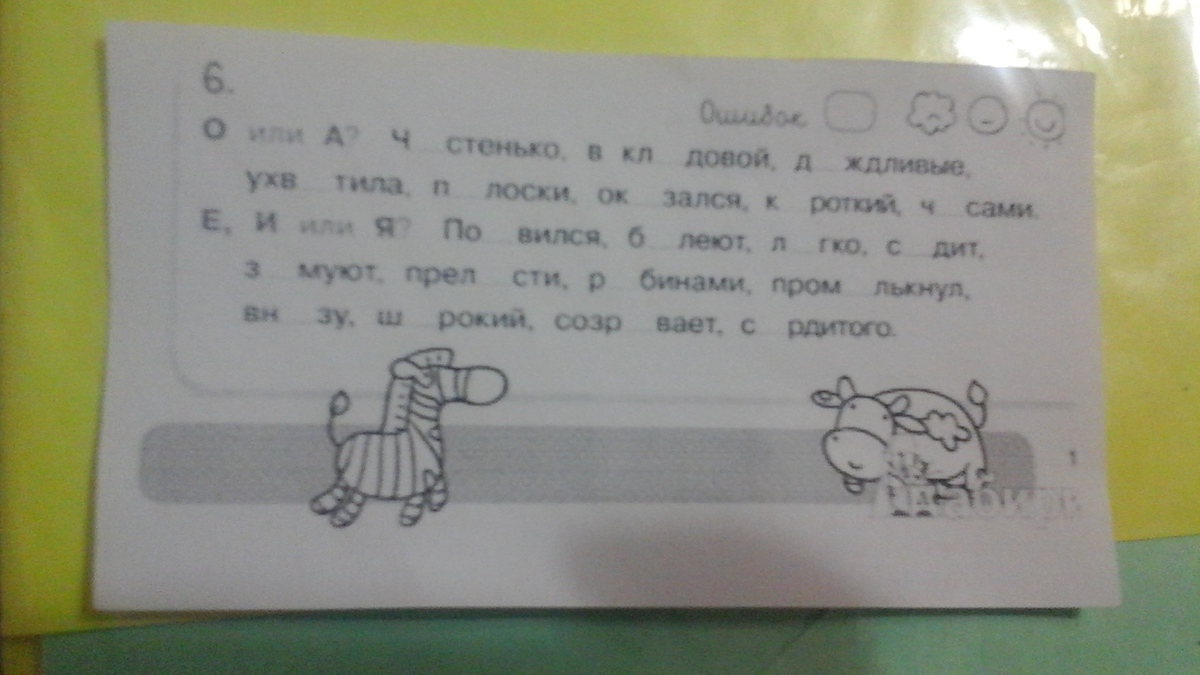 6.
Ошибок
О или А? Ч стенько, в кл довой, д ждливые,
ухв тила, п лоски, ок зался, к роткий, ч сами.
Е, И или Я? По вился, б леют, л гко, с дит,
з муют, прел сти, р бинами, пром лькнул,
вн зу, ш рокий, созр вает, с рдитого.
1